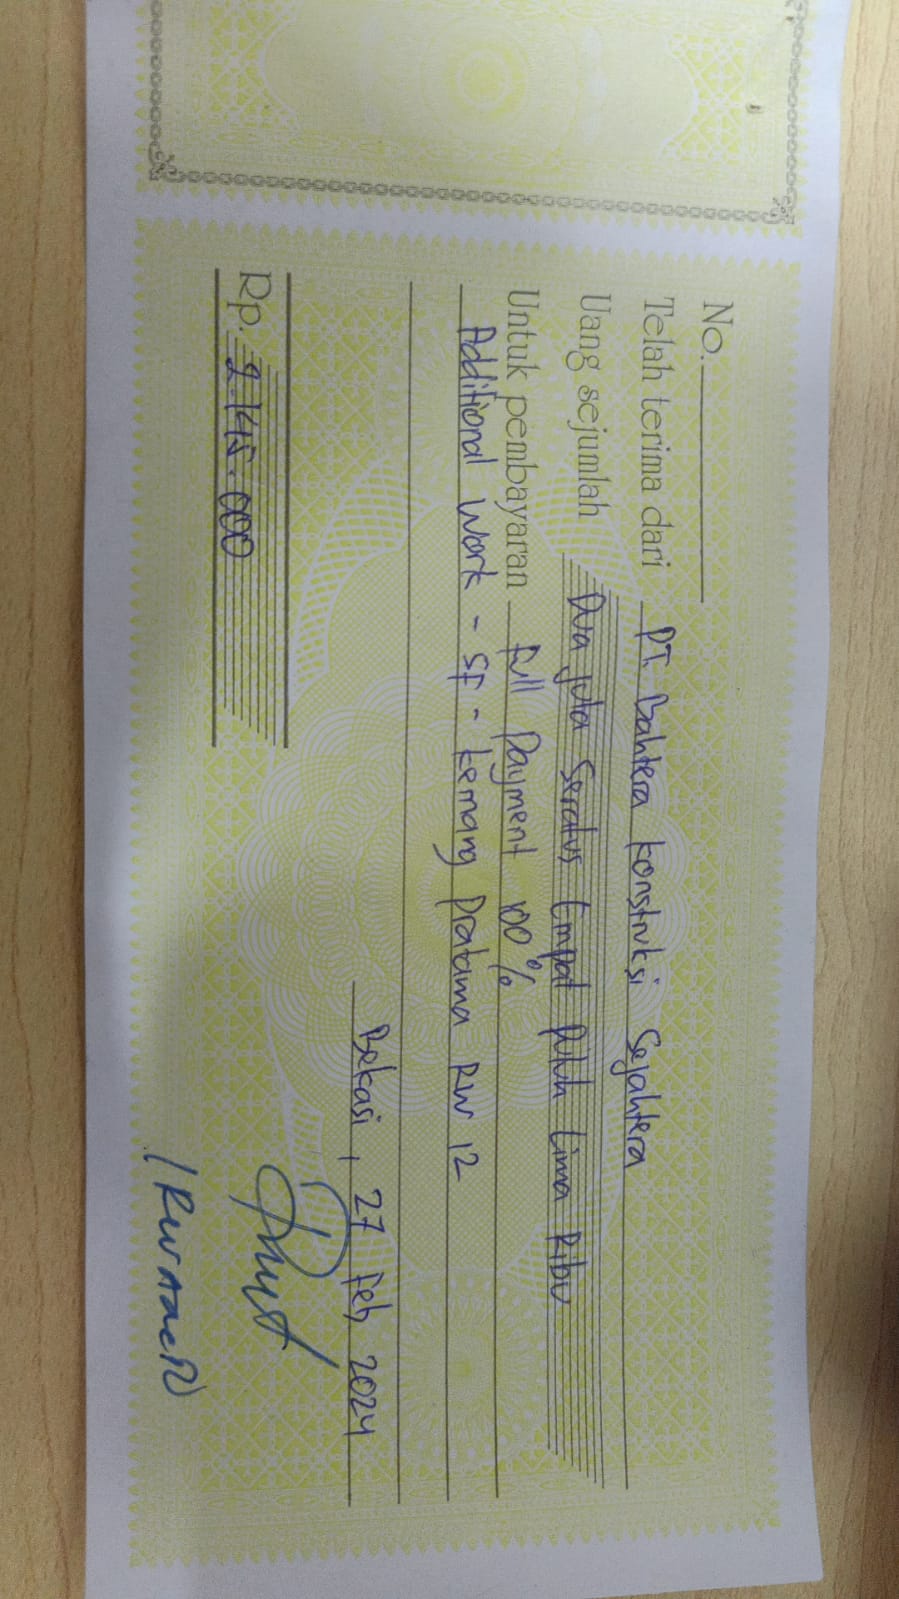 No.
Telah terima dari PT. Bahtera Konstruksi Sejahtera
Uang sejumlah Dua juta Seratus Empat Puluh Lima Ribu
Untuk pembayaran Full Payment 100%
Additional Work - SF - Kemang Pratama RW 12
Bekasi, 27 Feb 2024
Rp. 2.145.000